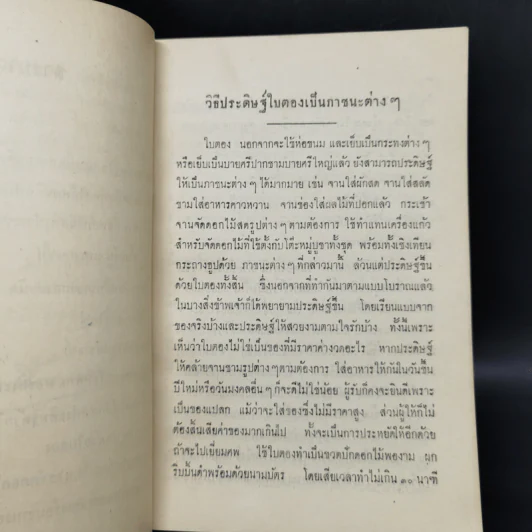 วิธีประดิษฐ์ใบตองเป็นภาชนะต่าง ๆ
ใบตอง นอกจากจะใช้ห่อขนม และเย็บเป็นกระทงต่าง ๆ
หรือเย็บเป็นบายศรีปากชามบายศรีใหญ่แล้ว ยังสามารถประดิษฐ์
ให้เป็นภาชนะต่าง ๆ ได้มากมาย เช่น จานใส่ผักสด จานใส่สลัด
ชามใส่อาหารคาวหวาน จานช่องใส่ผลไม้ที่ปอกแล้ว กระเช้า
จานจัดดอกไม้สดรูปต่างๆ ตามต้องการ ใช้ทำแทนเครื่องแก้ว
สำหรับจัดดอกไม้ที่ใช้ตั้งกับโต๊ะหมู่บูชาทั้งชุด พร้อมทั้งเชิงเทียน
กระถางธูปด้วย ภาชนะต่าง ๆ ที่กล่าวมานี้ ล้วนแต่ประดิษฐ์ขึ้น
ด้วยใบตองทั้งสิ้น ซึ่งนอกจากที่ทำกันมาตามแบบโบราณแล้ว
ในบางสิ่งข้าพเจ้าก็ได้พยายามประดิษฐ์ขึ้น โดยเรียนแบบจาก
ของจริงบ้างและประดิษฐ์ให้สวยงามตามใจรักบ้าง ทั้งนี้เพราะ
เห็นว่าใบตองไม่ใช่เป็นของที่มีราคาค่างวดอะไร หากประดิษฐ์
ให้คล้ายจานชามรูปต่างๆ ตามต้องการ ใส่อาหารให้กันในวันขึ้น
ปีใหม่หรือวันมงคลอื่น ๆ ก็จะดีไม่ใช่น้อย ผู้รับก็คงจะยินดีเพราะ
เป็นของแปลก แม้ว่าจะใส่ของซึ่งไม่มีราคาสูง ส่วนผู้ให้ก็ไม่
ต้องสิ้นเสียค่าของมากเกินไป ทั้งจะเป็นการประหยัดให้อีกด้วย
ถ้าจะไปเยี่ยมศพ ใช้ใบตองทำเป็นขวดปักดอกไม้พองาม ผูก
ริบบิ้นดำพร้อมด้วยนามบัตร โดยเสียเวลาทำไม่เกิน ๓๐ นาที